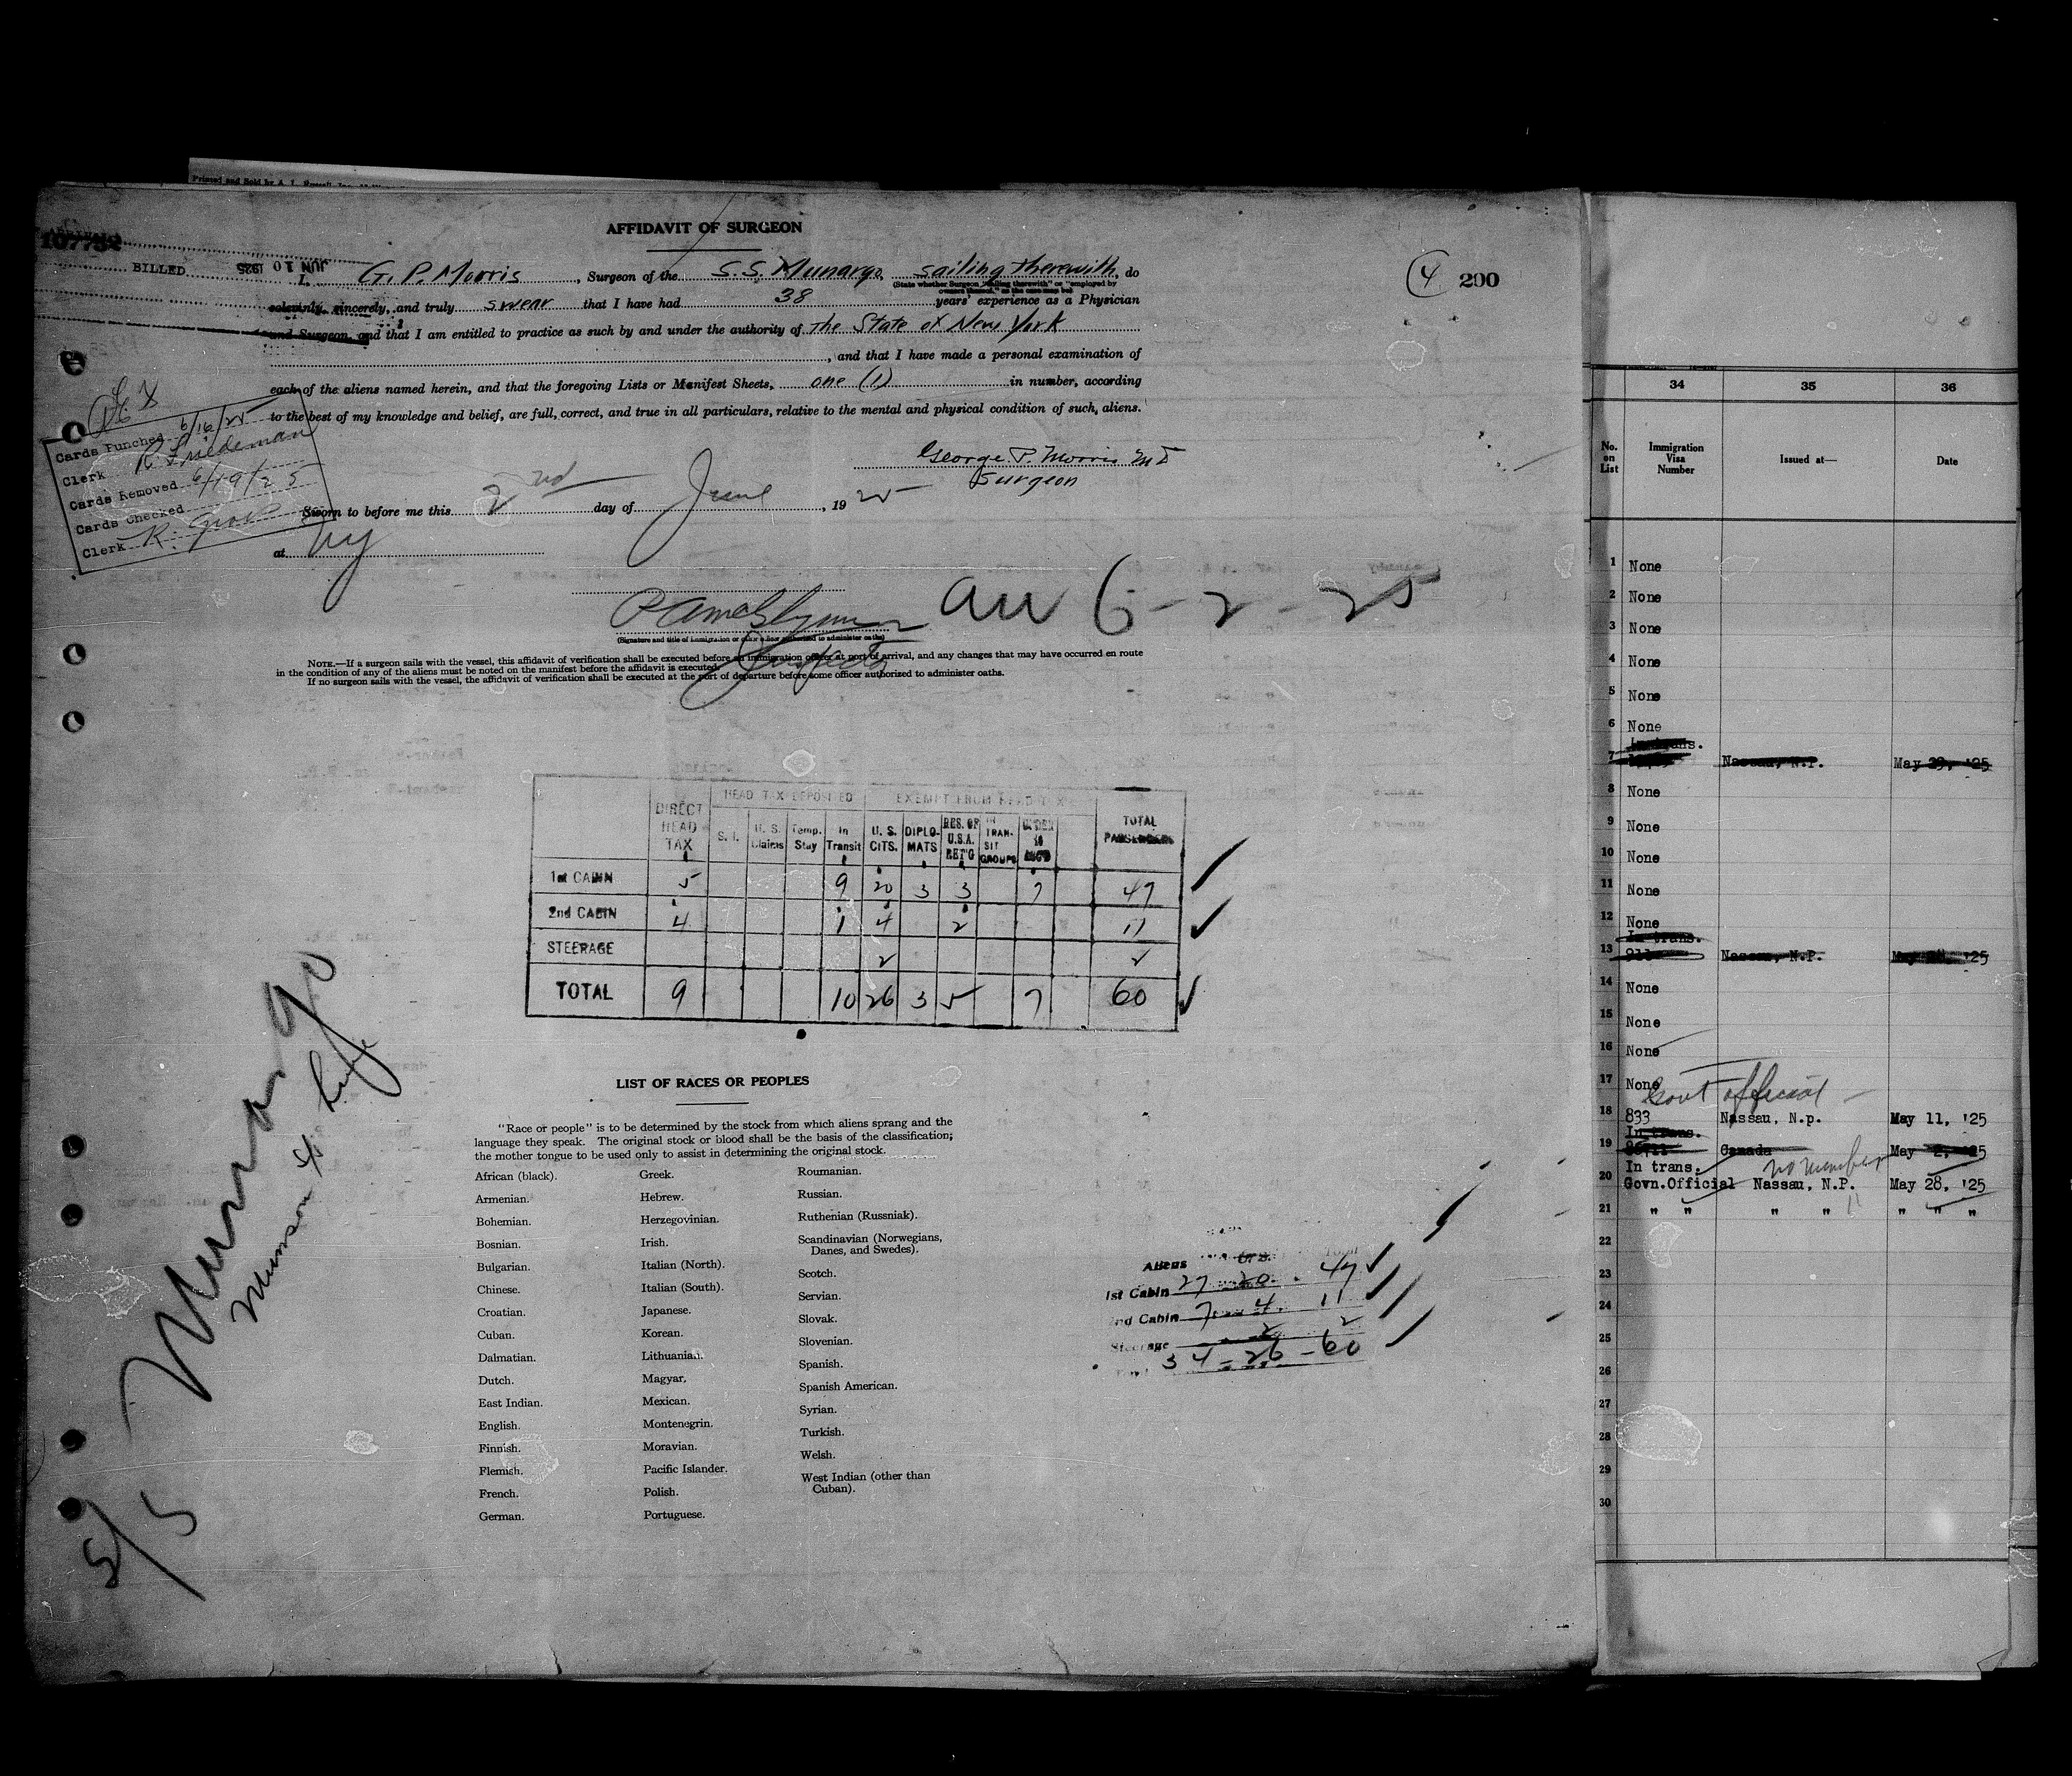 Printed and Sold by
AFFIDAVIT OF SURGEON
107732
BILLED JUN 10 1925
I, G. P. Morris, Surgeon of the S.S. Munargo, sailing therewith, do
(State whether Surgeon "sailing therewith" or "employed by owners thereof," as the case may be)
solemnly, sincerely, and truly swear that I have had 38 years' experience as a Physician
and Surgeon, and that I am entitled to practice as such by and under the authority of The State of New York
, and that I have made a personal examination of
each of the aliens named herein, and that the foregoing Lists or Manifest Sheets, one (1) in number, according
to the best of my knowledge and belief, are full, correct, and true in all particulars, relative to the mental and physical condition of such, aliens.
4 290
Cards Punched 6/16/25
Clerk R. Friedeman
Cards Removed 6/19/25
Cards Checked
Clerk R.
George P. Morris MD
Surgeon
Sworn to before me this 2nd day of June, 1925
at NY
6-2-25
(Signature and title of immigration or other officer authorized to administer oaths)
Inspector
NOTE.—If a surgeon sails with the vessel, this affidavit of verification shall be executed before an immigration officer at port of arrival, and any changes that may have occurred en route
in the condition of any of the aliens must be noted on the manifest before the affidavit is executed.
If no surgeon sails with the vessel, the affidavit of verification shall be executed at the port of departure before some officer authorized to administer oaths.
HEAD TAX DEPOSITED EXEMPT FROM HEAD TAX
DIRECT HEAD TAX S. I. U. S. Claims Temp. Stay In Transit U. S. CITS. DIPLOMATS RES. OF U.S.A. RET'G IN TRANSIT GROUPS UNDER 16 TOTAL PASSENGERS
1st CABIN 5 9 20 3 3 7 47
2nd CABIN 4 1 4 2 11
STEERAGE 2 2
TOTAL 9 10 26 3 5 7 60
Munargo
Munson
5/5
LIST OF RACES OR PEOPLES
"Race or people" is to be determined by the stock from which aliens sprang and the
language they speak. The original stock or blood shall be the basis of the classification;
the mother tongue to be used only to assist in determining the original stock.
African (black).
Armenian.
Bohemian.
Bosnian.
Bulgarian.
Chinese.
Croatian.
Cuban.
Dalmatian.
Dutch.
East Indian.
English.
Finnish.
Flemish.
French.
German.
Greek.
Hebrew.
Herzegovinian.
Irish.
Italian (North).
Italian (South).
Japanese.
Korean.
Lithuanian.
Magyar.
Mexican.
Montenegrin.
Moravian.
Pacific Islander.
Polish.
Portuguese.
Roumanian.
Russian.
Ruthenian (Russniak).
Scandinavian (Norwegians,
Danes, and Swedes).
Scotch.
Servian.
Slovak.
Slovenian.
Spanish.
Spanish American.
Syrian.
Turkish.
Welsh.
West Indian (other than
Cuban).
Aliens U.S. Total
1st Cabin 27 20 47
2nd Cabin 7 4 11
Steerage 2 2
34 - 26 - 60
34 35 36
No. on List Immigration Visa Number Issued at— Date
1 None
2 None
3 None
4 None
5 None
6 None
7 Nassau, N.P. May 29, '25
8 None
9 None
10 None
11 None
12 None
In trans.
13 Nassau, N.P. May '25
14 None
15 None
16 None
17 None
Govt Official
18 833 Nassau, N.p. May 11, '25
In trans.
19 Canada May 2, '25
In trans. no number
20 Govn.Official Nassau, N.P. May 28, '25
21 " " " " " " "
22
23
24
25
26
27
28
29
30